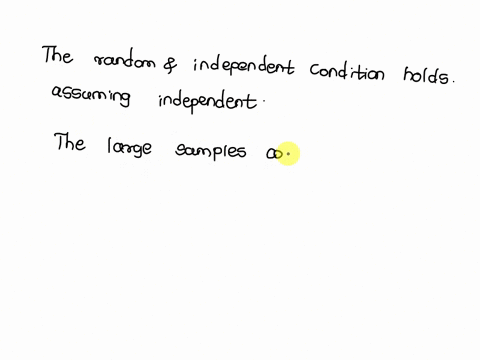 The random & independent condition holds.
assuming independent.
The large samples co